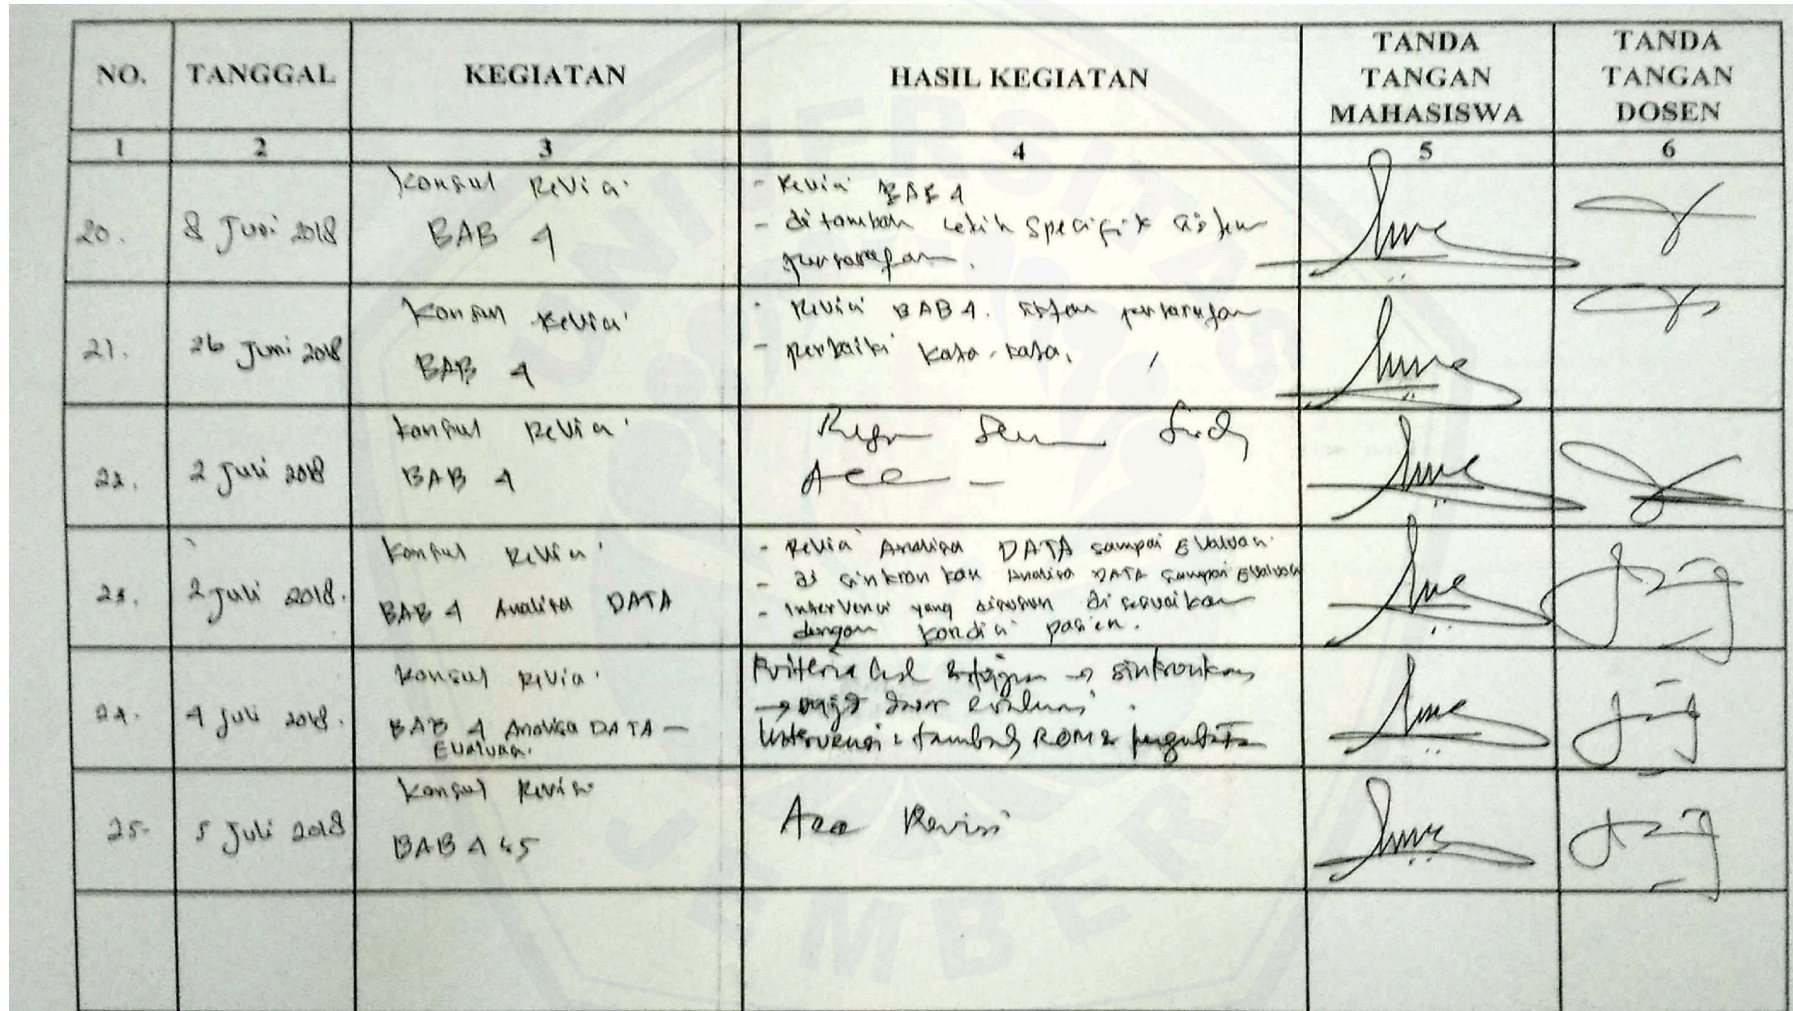 NO. TANGGAL KEGIATAN HASIL KEGIATAN TANDA TANGAN MAHASISWA TANDA TANGAN DOSEN
1 2 3 4 5 6
20. 8 Juni 2018
Konsul Revisi
BAB 4
- Revisi BAB 4
- di tambah lebih specifik sistem
persarafan.
21. 26 Juni 2018
Konsul Revisi
BAB 4
- Revisi BAB 4. sistem persarafan
- perbaiki kata-kata.
22. 2 Juli 2018
Konsul Revisi
BAB 4
Acc
23. 2 Juli 2018.
Konsul Revisi
BAB 4 Analisa DATA
- Revisi Analisa DATA sampai Evaluasi
- di sinkron kan Analisa DATA sampai Evaluasi
- Intervensi yang disusun di sesuaikan
dengan kondisi pasien.
24. 4 Juli 2018.
Konsul Revisi
BAB 4 Analisa DATA -
Evaluasi.
Kriteria hasil → sinkronkan
→ evaluasi.
Intervensi : tambah ROM &
25. 5 Juli 2018
Konsul Revisi
BAB 4 & 5
Acc Revisi
UNIVERSITAS
JEMBER